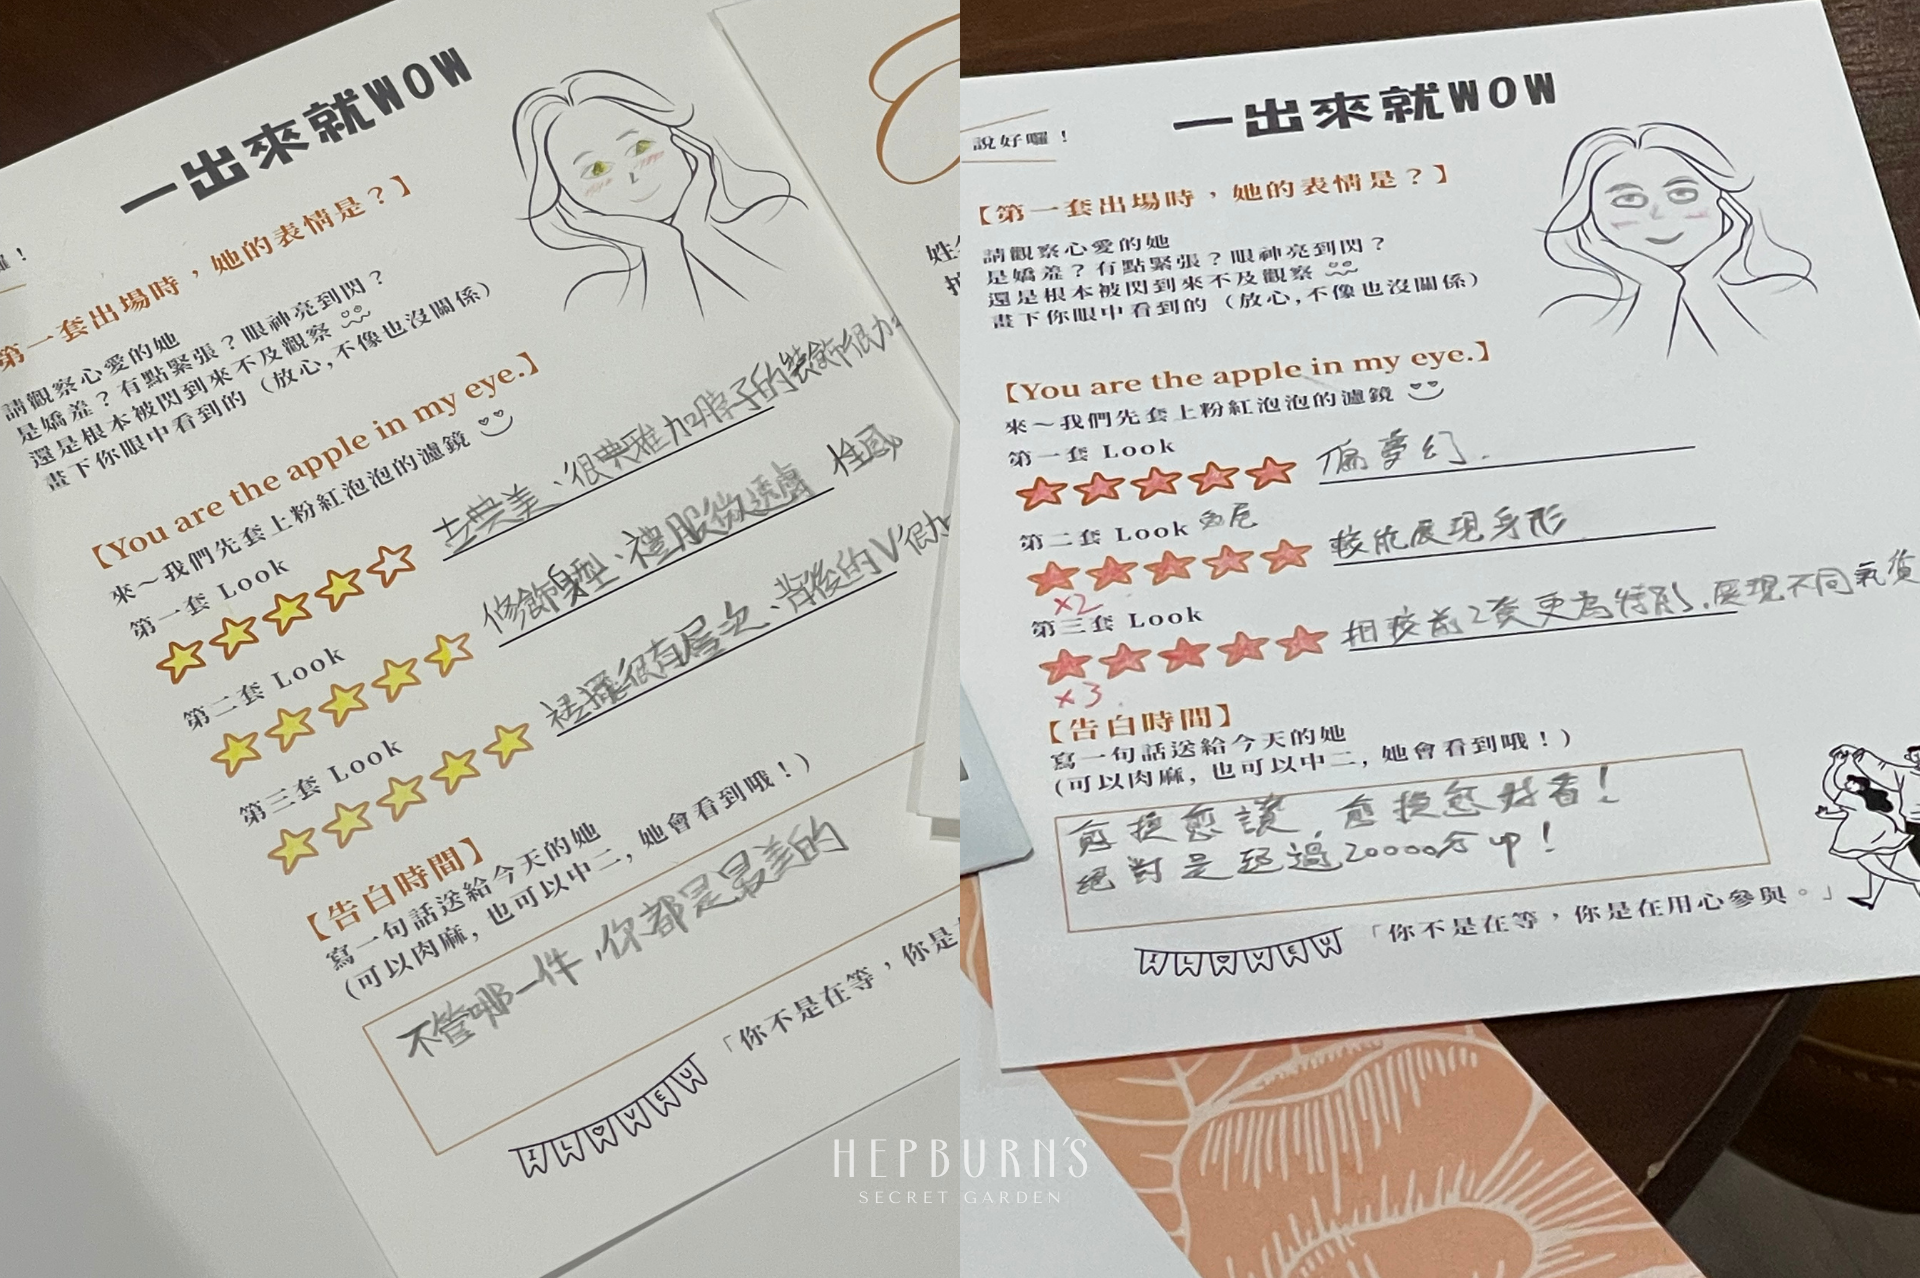 一出來就WOW
【第一套出場時，她的表情是？】
請觀察心愛的她
是嬌羞？有點緊張？眼神亮到閃？
還是根本被閃到來不及觀察
畫下你眼中看到的（放心,不像也沒關係）
【You are the apple in my eye.】
來～我們先套上粉紅泡泡的濾鏡
第一套 Look
古典美、很典雅加脖子的裝飾很加
第二套 Look
修飾身型、禮服微透膚 性感
第三套 Look
裙擺很有層次、背後的V很加
【告白時間】
寫一句話送給今天的她
(可以肉麻, 也可以中二, 她會看到哦！)
不管哪一件，你都是最美的
I LOVE U
「你不是在等，你是
說好囉！
一出來就WOW
【第一套出場時，她的表情是？】
請觀察心愛的她
是嬌羞？有點緊張？眼神亮到閃？
還是根本被閃到來不及觀察
畫下你眼中看到的（放心,不像也沒關係）
【You are the apple in my eye.】
來～我們先套上粉紅泡泡的濾鏡
第一套 Look
偏夢幻.
第二套 Look 魚尾
較能展現身形
x2
第三套 Look
相較前2套更為特別,展現不同氣質
x3
【告白時間】
寫一句話送給今天的她
(可以肉麻, 也可以中二, 她會看到哦！)
愈換愈讚，愈換愈好看！
絕對是超過20000分 up！
I LOVE U
「你不是在等，你是在用心參與。」
HEPBURN'S
SECRET GARDEN